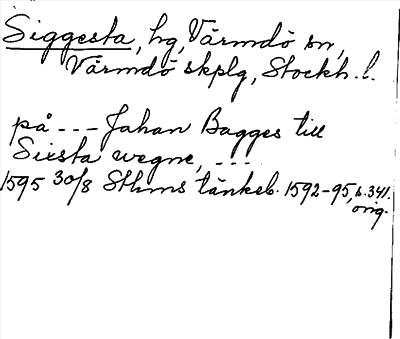 Siggesta, hg, Värmdö sn,
Värmdö skplg, Stockh. l.
på --- Jahan Bagges till
Sixsta wegne, ----
1595 30/8 Sthms tänkeb. 1592-95, b. 341.
orig.